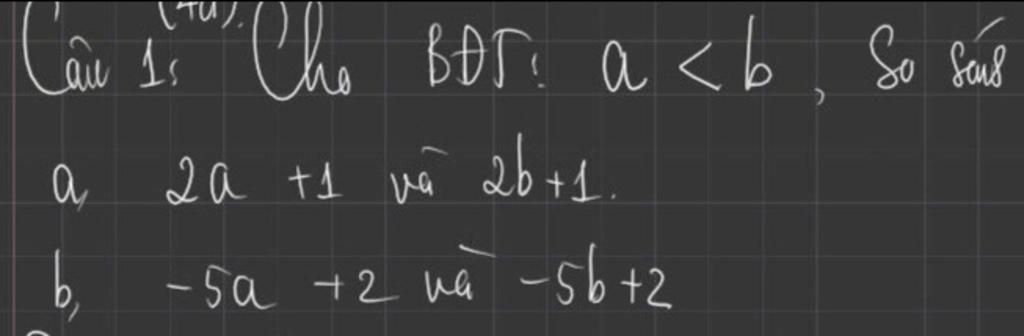 (4đ).
Câu 1: Cho BĐT: a < b, So sánh
a, 2a +1 và 2b+1.
b, -5a +2 và -5b+2